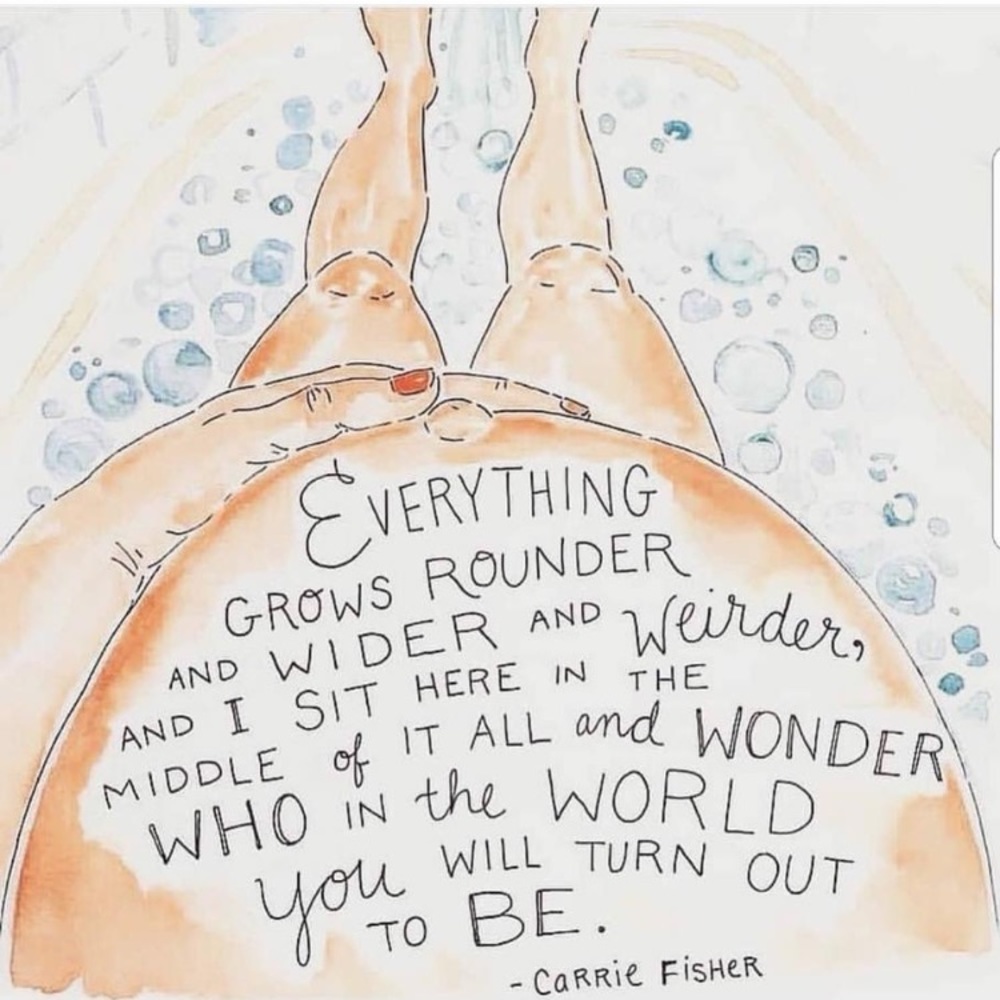 EVERYTHING
GROWS ROUNDER
AND WIDER AND Weirder,
AND I SIT HERE IN THE
MIDDLE of IT ALL and WONDER
WHO IN the WORLD
you WILL TURN OUT
TO BE.
- CARRiE FiSHER